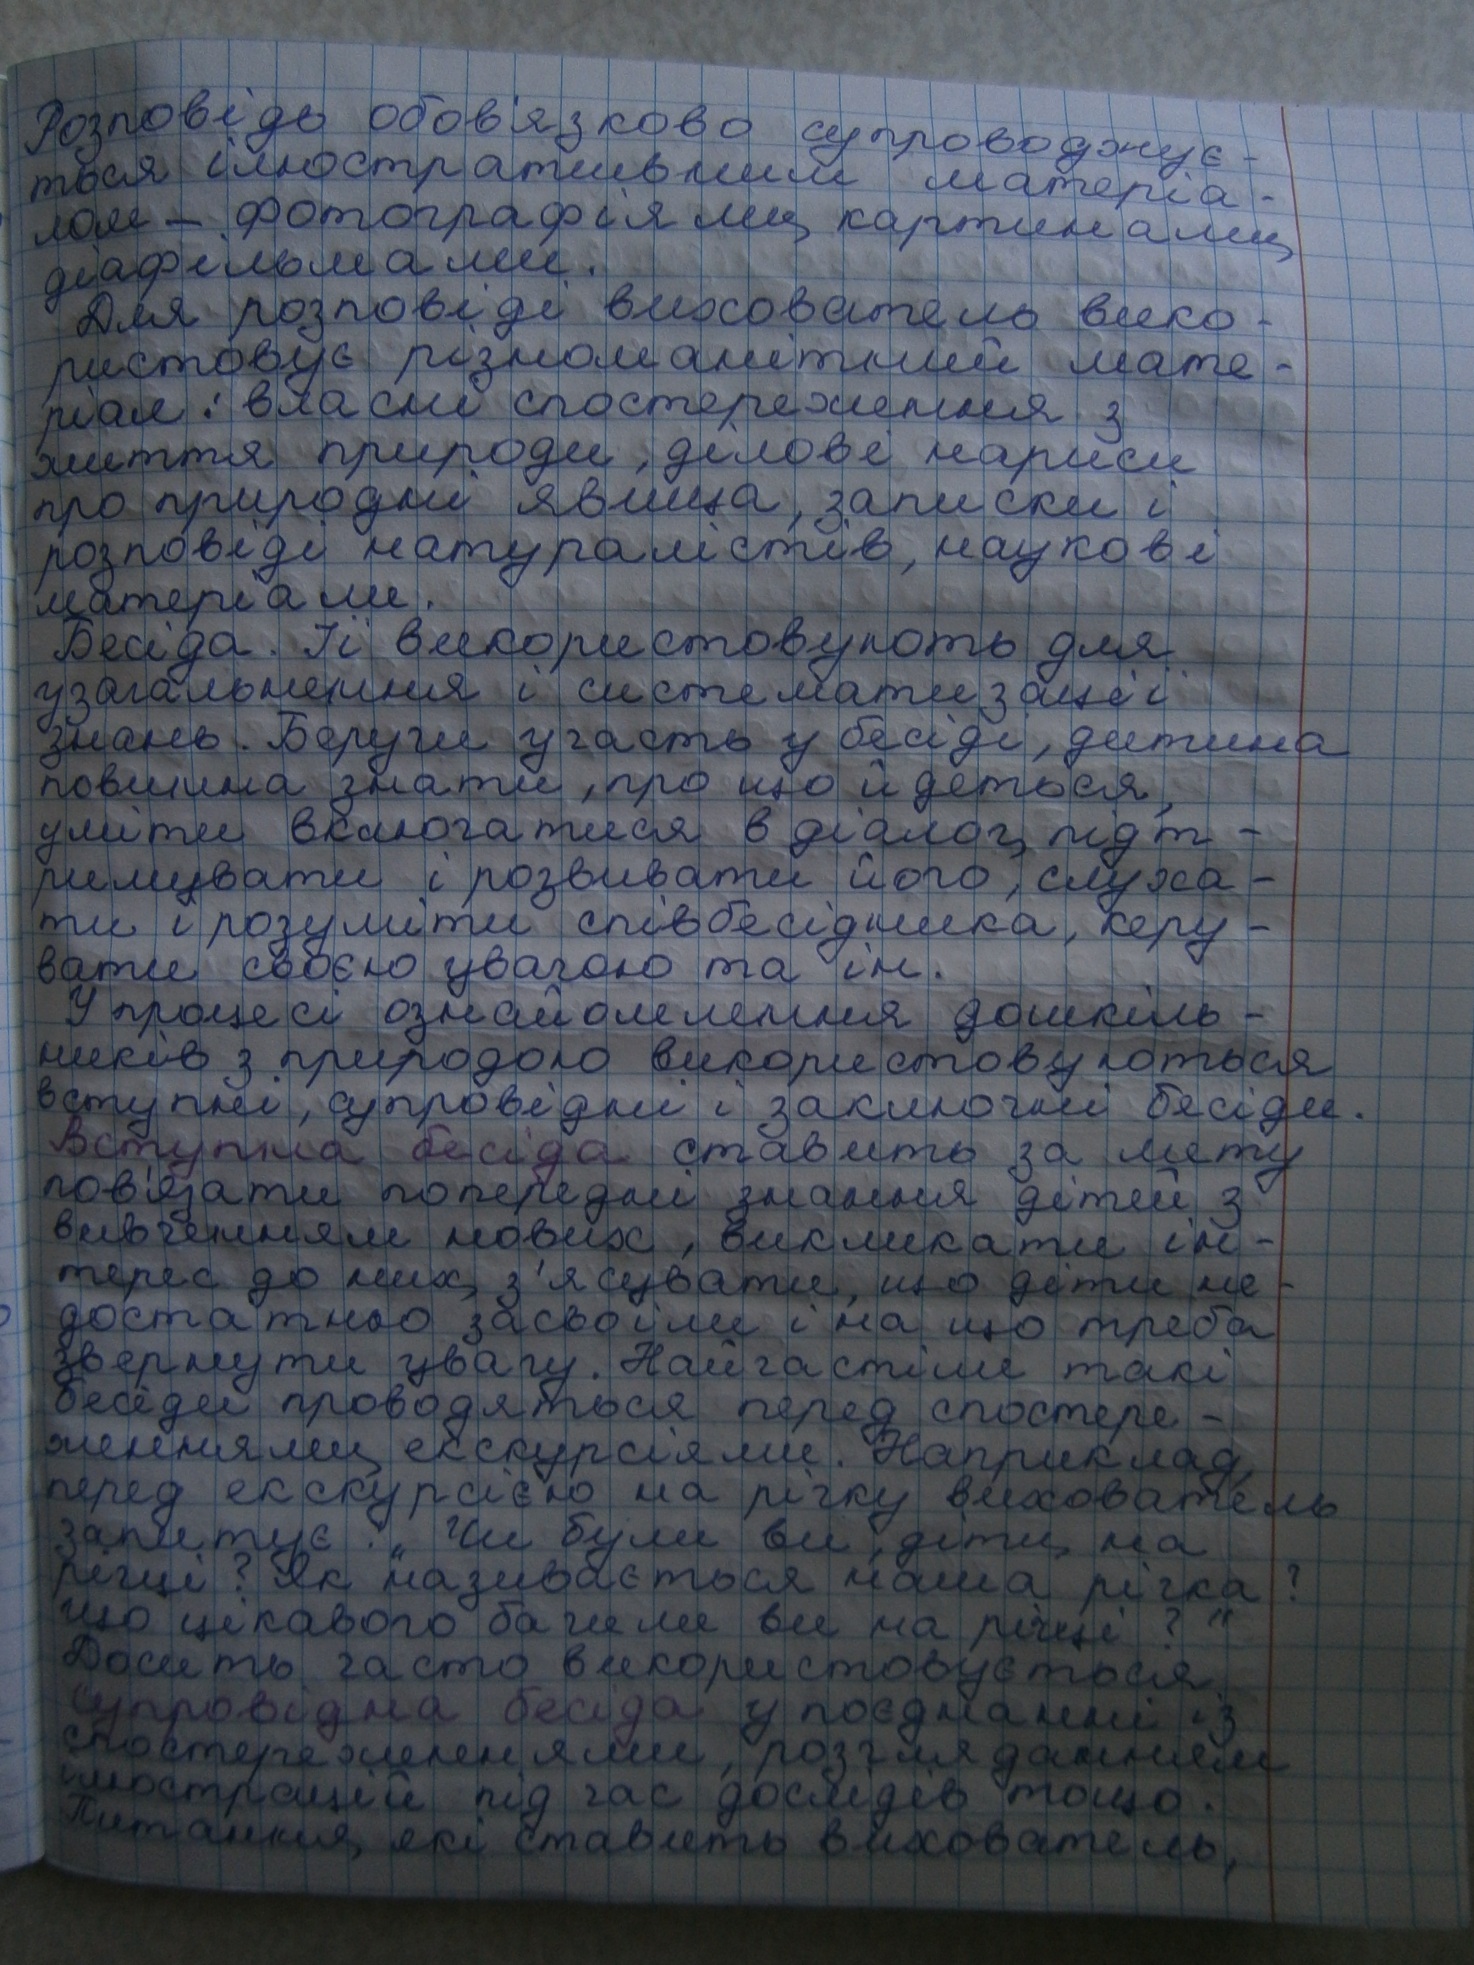 Розповідь обов'язково супроводжує-
ться ілюстративним матеріа-
лом – фотографіями, картинами,
діафільмами.
Для розповіді вихователь вико-
ристовує різноманітний мате-
ріал: власні спостереження з
життя природи, ділові нариси
про природні явища, записки і
розповіді натуралістів, наукові
матеріали.
Бесіда. Її використовують для
узагальнення і систематизації
знань. Беручи участь у бесіді, дитина
повинна знати, про що йдеться,
уміти включатися в діалог, підт-
римувати і розвивати його, слуха-
ти і розуміти співбесідника, керу-
вати своєю увагою та ін.
У процесі ознайомлення дошкіль-
ників з природою використовуються
вступні, супровідні і заключні бесіди.
Вступна бесіда ставить за мету
пов'язати попередні знання дітей з
вивченням нових, викликати ін-
терес до них, з'ясувати, що діти не-
достатньо засвоїли і на що треба
звернути увагу. Найчастіше такі
бесіди проводяться перед спостере-
женнями, екскурсіями. Наприклад,
перед екскурсією на річку вихователь
запитує: „Чи були ви, діти, на
річці? Як називається наша річка?
Що цікавого бачили ви на річці?"
Досить часто використовується
супровідна бесіда у поєднанні із
спостереженнями, розгляданням
ілюстрацій під час дослідів тощо.
Питання, які ставить вихователь,